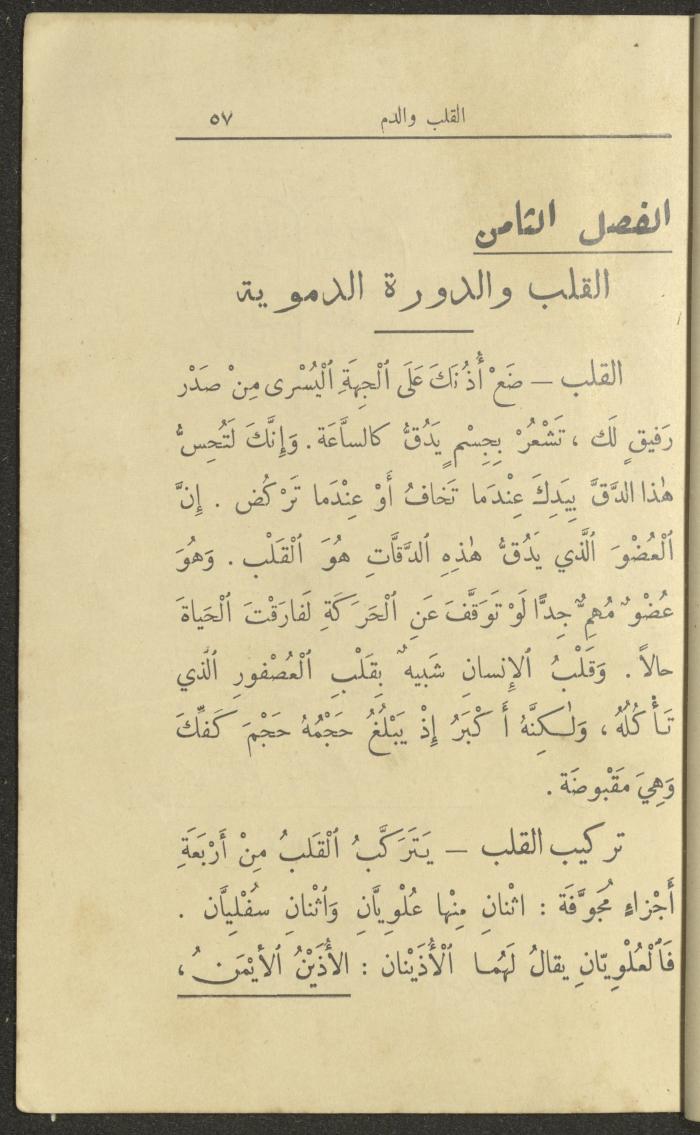 القلب والدم ٥٧
الفصل الثامن
القلب والدورة الدموية
القلب – ضَعْ أُذُنَكَ عَلَى ٱلْجِهَةِ ٱلْيُسْرى مِنْ صَدْر
رَفيقٍ لَك ، تَشْعُرْ بِجِسْمٍ يَدُقُّ كالساَّعَة . وَإِنَّكَ لَتُحِسُّ
هٰذا الدَّقَّ بِيَدِكَ عِنْدَما تَخافُ أَوْ عِنْدَما تَرْكُض . إِنَّ
ٱلْعُضْوَ ٱلَّذي يَدُقُّ هٰذِهِ ٱلدَّقَّاتِ هُوَ ٱلْقَلْب . وَهُوَ
عُضْوٌ مُهِمٌّ جِدًّا لَوْ تَوَقَّفَ عَنِ ٱلْحَرَكَةِ لَفارَقْتَ ٱلْحَياةَ
حالاً . وَقَلْبُ ٱلإِنسانِ شَبيهٌ بِقَلْبِ ٱلْعُصْفورِ ٱلَّذي
تَأْكُلُهُ ، وَلٰكِنَّهُ أَكْبَرُ إِذْ يَبْلُغُ حَجْمُهُ حَجْمَ كَفِّكَ
وَهِيَ مَقْبوضَة .
تركيب القلب – يَتَرَكَّبُ ٱلْقَلبُ مِنْ أَرْبَعَةِ
أَجْزاءٍ مُجَوَّفَة : اثْنانِ مِنْها عُلْوِيَّانِ وَٱثْنانِ سُفْلِيَّان .
فَٱلْعُلْوِيّانِ يقالُ لَهُما ٱلْأُذَيْنان : الأُذَيْنُ ٱلأَيْمَنُ ،